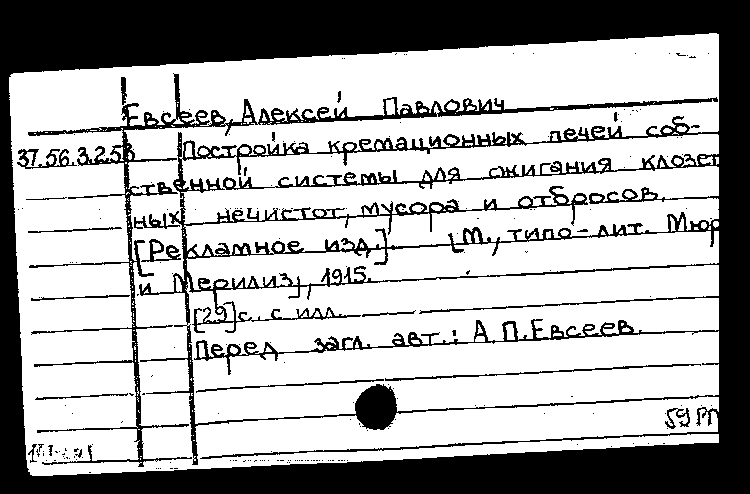 Евсеев, Алексей Павлович
37.56.3.2.53 Постройка кремационных печей соб-
ственной системы для сжигания клозет
ных нечистот, мусора и отбросов.
[Рекламное изд.]. [М., типо-лит. Мюр
и Мерилиз], 1915.
[29]с. с илл.
Перед загл. авт.: А.П.Евсеев.
59 РП